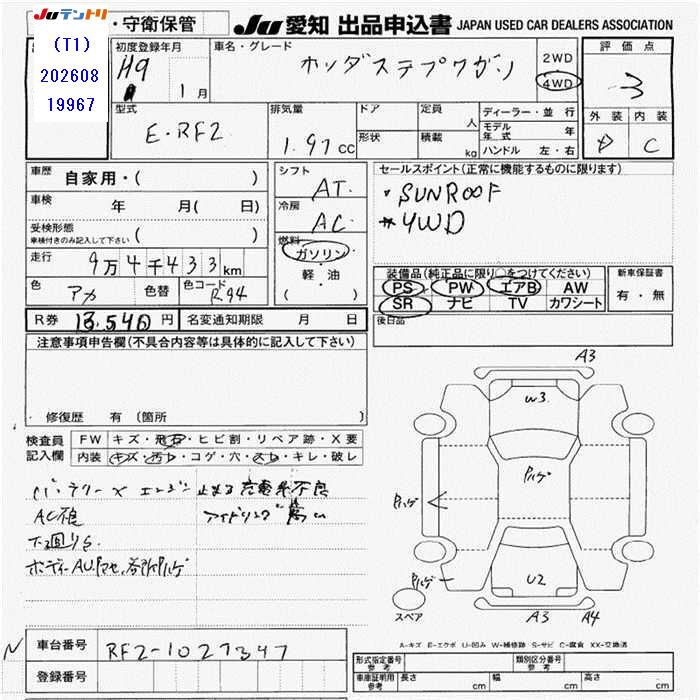 JUテントリ
(T1)
202608
19967
・守衛保管
JU 愛知 出品申込書 JAPAN USED CAR DEALERS ASSOCIATION
初度登録年月
H9
1月
車名・グレード
ホンダステップワゴン
2WD
4WD
評価点
3
外装 内装
D C
型式
E・RF2
排気量
1.97cc
ドア
形状
定員
人
積載
kg
ディーラー・並行
モデル年式 年
ハンドル 左・右
車歴 自家用・( )
車検 年 月( 日)
受検形態
車検付きのみ記入して下さい ( )
走行 9万4千433km
色 アカ 色替 色コード R94
シフト
AT
冷房
AC
燃料
ガソリン
軽・油
( )
セールスポイント(正常に機能するものに限ります)
・SUNROOF
*4WD
装備品(純正品に限り○をつけてください)
PS PW エアB AW
SR ナビ TV カワシート
新車保証書
有・無
R券 13.540円 名変通知期限 月 日
後日品
注意事項申告欄(不具合内容等は具体的に記入して下さい)
修復歴 有 (箇所 )
検査員記入欄
FW キズ・飛石・ヒビ割・リペア跡・X要
内装 キズ・汚レ・コゲ・穴・スレ・キレ・破レ
バッテリーX エンジン止まる 充電系不良
AC
アイドリング高い
下廻りS
ボディーAU
A3
W3
ハゲ
ハゲ
ハゲ
U2
スペア
A3 A4
A-キズ E-エクボ U-凹み W-補修跡 S-サビ C-腐食 XX-交換済
N
車台番号 RF2-1027347
登録番号
形式指定番号
参考
類別区分番号
参考
車庫証明用
参考
長さ cm 幅 cm 高さ cm